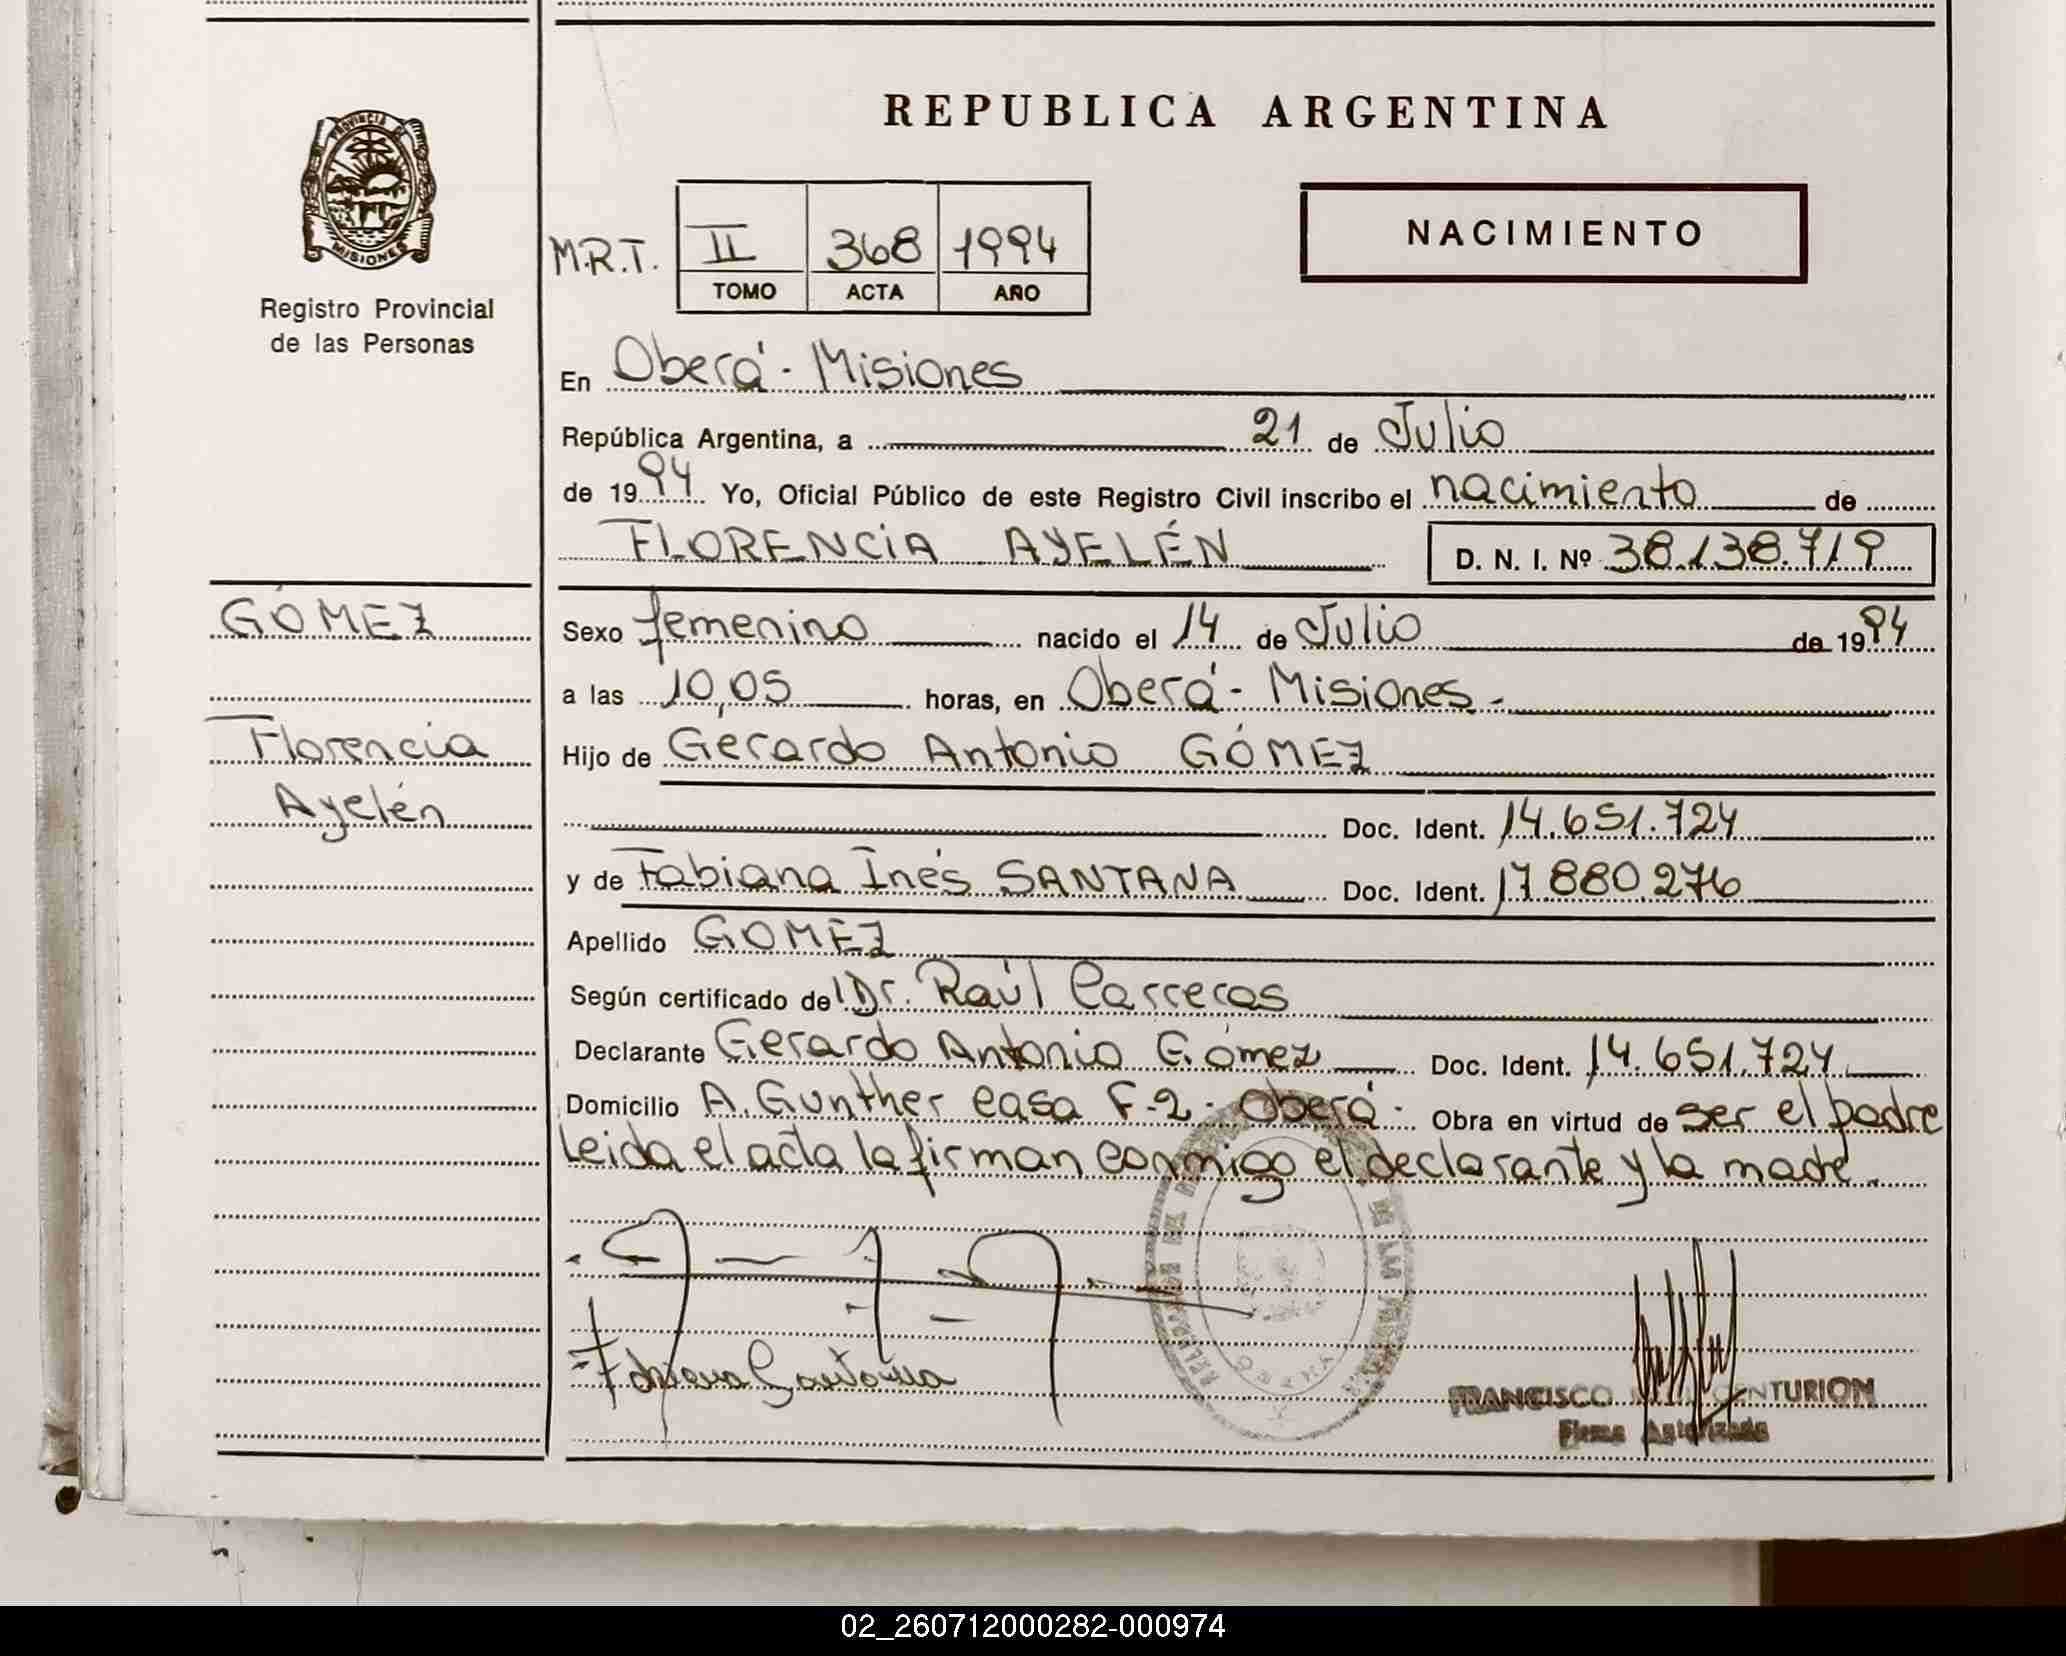 REPUBLICA ARGENTINA
PROVINCIA DE
MISIONES
Registro Provincial
de las Personas
M.R.T.
II 368 1994
TOMO ACTA AÑO
NACIMIENTO
En Oberá - Misiones
República Argentina, a 21 de Julio
de 1994 Yo, Oficial Público de este Registro Civil inscribo el nacimiento de
FLORENCIA AYELÉN D. N. I. Nº 38.138.719
GÓMEZ
Florencia
Ayelén
Sexo femenino nacido el 14 de Julio de 1994
a las 10,05 horas, en Oberá - Misiones.-
Hijo de Gerardo Antonio GÓMEZ
Doc. Ident. 14.651.724
y de Fabiana Inés SANTANA Doc. Ident. 17.880.276
Apellido GOMEZ
Según certificado de Dr. Raúl Carreras
Declarante Gerardo Antonio Gómez Doc. Ident. 14.651.724
Domicilio A. Gunther casa F-2 - Oberá - Obra en virtud de ser el padre
Leida el acta la firman conmigo el declarante y la madre.
Fabiana Santana
FRANCISCO CENTURION
Firma Autorizada
02_260712000282-000974